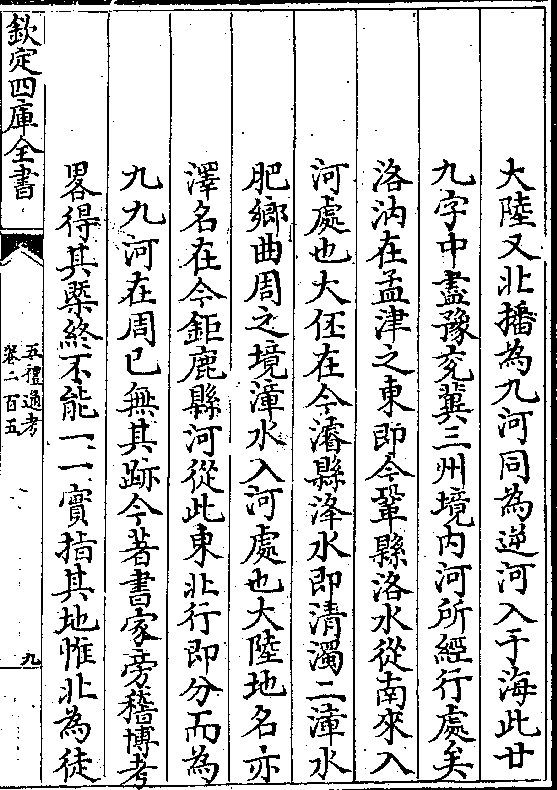 大陸又北播為九河同為逆河入于海此廿
九字中盡豫兖冀三州境内河所經行處矣
洛汭在孟津之東即今鞏縣洛水從南來入
河處也大伾在今濬縣洚水即清濁二漳水
肥鄉曲周之境漳水入河處也大陸地名亦
澤名在今鉅鹿縣河從此東北行即分而為
九九河在周已無其跡今著書家旁稽博考
畧得其槩終不能一一實指其地惟北為徒
欽定四庫全書
五禮通考
卷二百五
九